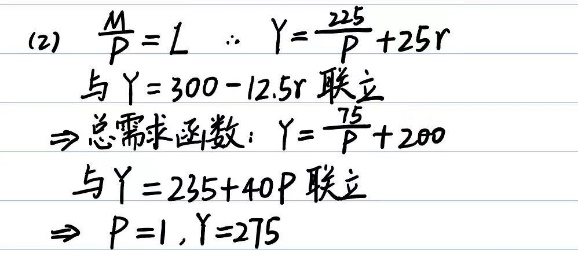 (2) M/P = L ∴ Y = 225/P + 25r
与 Y = 300 - 12.5r 联立
⇒ 总需求函数: Y = 75/P + 200
与 Y = 235 + 40P 联立
⇒ P = 1, Y = 275